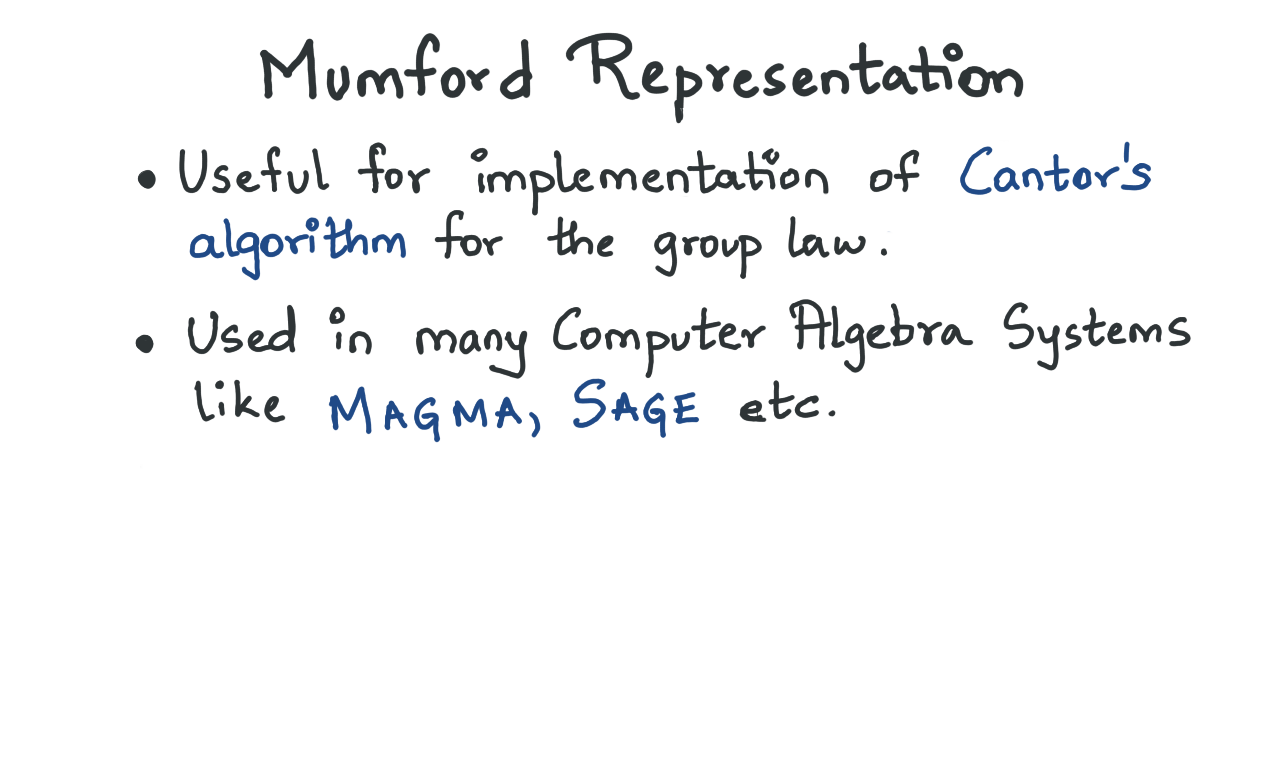 Mumford Representation
• Useful for implementation of Cantor's
algorithm for the group law.
• Used in many Computer Algebra Systems
like MAGMA, SAGE etc.